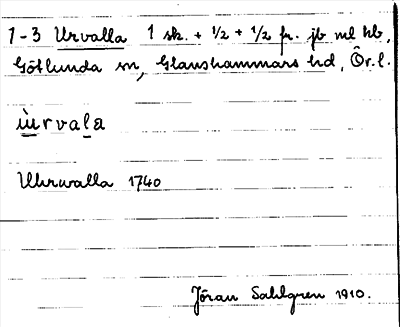 1-3 Urvalla 1 sk. + 1/2 + 1/2 fr. jb ml hb,
Götlunda sn, Glanshammars hd, Ör.l.
ùrvala
Uhrwalla 1740
Jöran Sahlgren 1910.